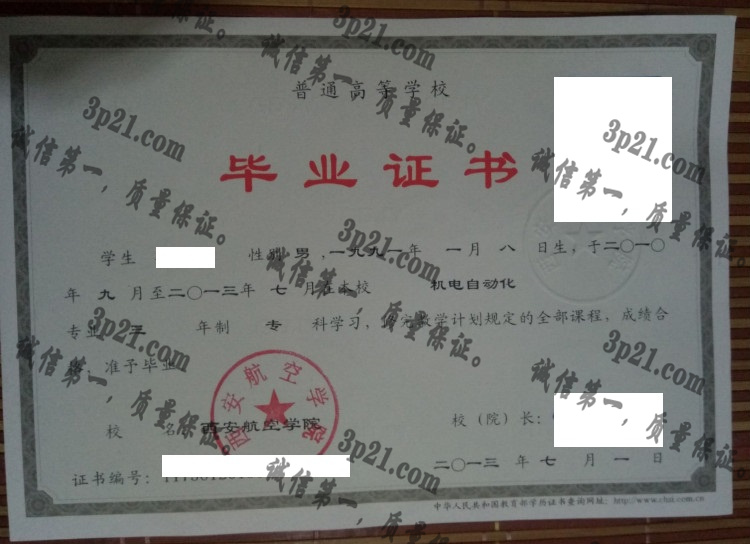 普通高等学校
毕业证书
学生 性别 男 ,一九九一年 一月 八 日生,于二〇一〇
年 九 月至二〇一三年 七 月在本校 机电自动化
专业 三 年制 专 科学习, 完教学计划规定的全部课程,成绩合
,准予毕业
校 名 西安航空学院
校(院)长:
西安航空学院
证书编号:
二〇一三 年 七 月 一 日
中华人民共和国教育部学历证书查询网址: http://www.chsi.com.cn
3p21.com
诚信第一,质量保证。
3p21.com
诚信第一,质量保证。
3p21.com
诚信第一,质量保证。
3p21.com
诚信第一,质量保证。
3p21.com
诚信第一,质量保证。
3p21.com
诚信第一,质量保证。
3p21.com
诚信第一,质量保证。